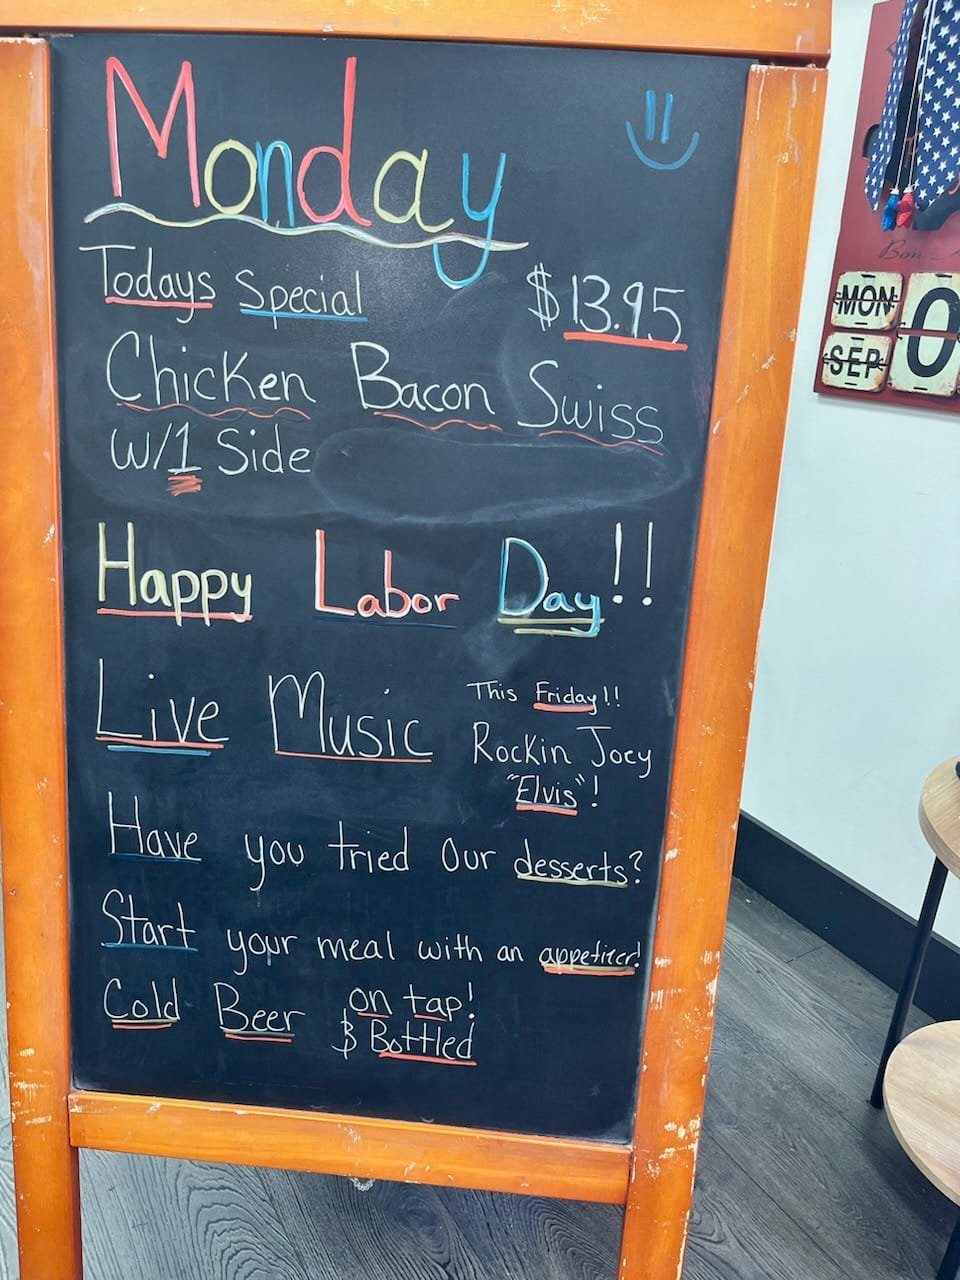 Monday
Todays Special $13.95
Chicken Bacon Swiss
W/1 Side
Happy Labor Day!!
Live Music This Friday!!
Rockin Joey
"Elvis"!
Have you tried Our desserts?
Start your meal with an appetizer!
Cold Beer on tap!
& Bottled
Bon
MON
SEP
0